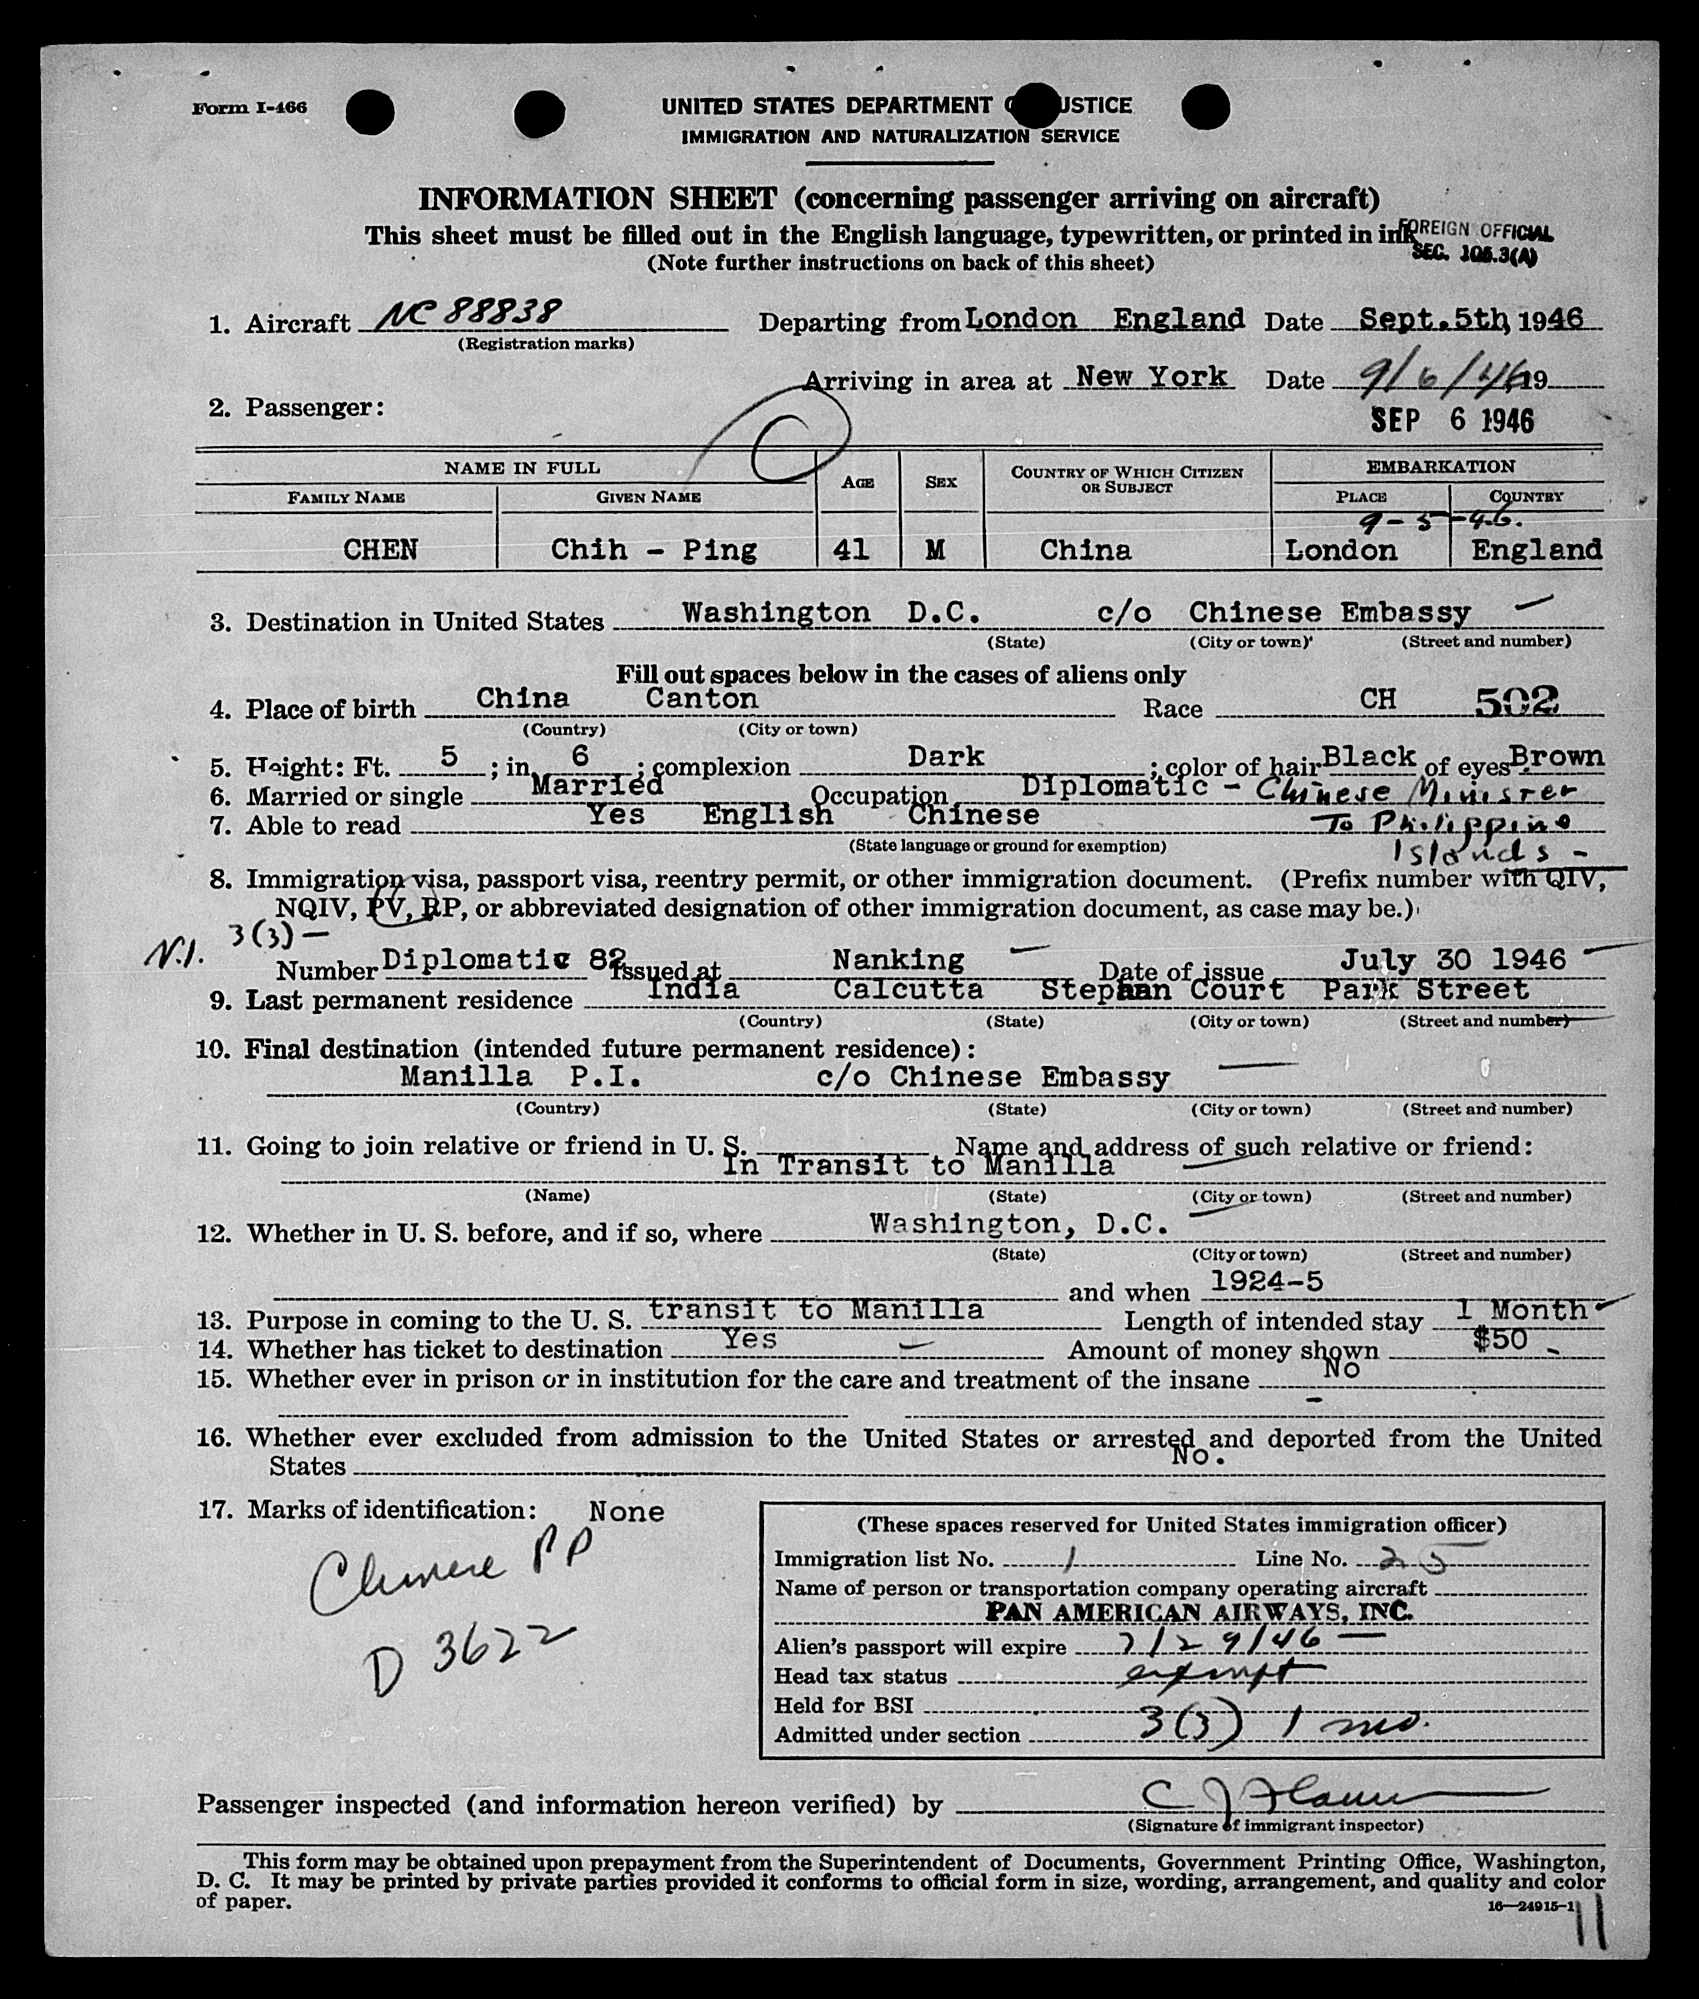 Form I-466
UNITED STATES DEPARTMENT JUSTICE
IMMIGRATION AND NATURALIZATION SERVICE
INFORMATION SHEET (concerning passenger arriving on aircraft)
This sheet must be filled out in the English language, typewritten, or printed in ink
FOREIGN OFFICIAL
(Note further instructions on back of this sheet)
SEC. 105.3(A)
1. Aircraft NC 88838 Departing from London England Date Sept. 5th, 1946
(Registration marks)
Arriving in area at New York Date 9/6/46, 19
2. Passenger:
SEP 6 1946
NAME IN FULL AGE SEX COUNTRY OF WHICH CITIZEN OR SUBJECT EMBARKATION
FAMILY NAME GIVEN NAME PLACE COUNTRY
9-5-46.
CHEN Chih - Ping 41 M China London England
3. Destination in United States Washington D.C. c/o Chinese Embassy
(State) (City or town) (Street and number)
Fill out spaces below in the cases of aliens only
4. Place of birth China Canton Race CH 502
(Country) (City or town)
5. Height: Ft. 5; in. 6; complexion Dark; color of hair Black of eyes Brown
6. Married or single Married Occupation Diplomatic - Chinese Minister
7. Able to read Yes English Chinese To Philippine
(State language or ground for exemption) Islands -
8. Immigration visa, passport visa, reentry permit, or other immigration document. (Prefix number with QIV,
NQIV, PV, RP, or abbreviated designation of other immigration document, as case may be.)
N.I. 3(3) -
Number Diplomatic 82 Issued at Nanking Date of issue July 30 1946
9. Last permanent residence India Calcutta Stephan Court Park Street
(Country) (State) (City or town) (Street and number)
10. Final destination (intended future permanent residence):
Manilla P.I. c/o Chinese Embassy
(Country) (State) (City or town) (Street and number)
11. Going to join relative or friend in U. S. Name and address of such relative or friend:
In Transit to Manilla
(Name) (State) (City or town) (Street and number)
12. Whether in U. S. before, and if so, where Washington, D.C.
(State) (City or town) (Street and number)
and when 1924-5
13. Purpose in coming to the U. S. transit to Manilla Length of intended stay 1 Month
14. Whether has ticket to destination Yes Amount of money shown $50
15. Whether ever in prison or in institution for the care and treatment of the insane No
16. Whether ever excluded from admission to the United States or arrested and deported from the United
States No.
17. Marks of identification: None
Chinese PP
D 3622
(These spaces reserved for United States immigration officer)
Immigration list No. 1 Line No. 25
Name of person or transportation company operating aircraft
PAN AMERICAN AIRWAYS, INC.
Alien's passport will expire 7/29/46
Head tax status exempt
Held for BSI
Admitted under section 3(3) 1 mo.
Passenger inspected (and information hereon verified) by C J
(Signature of immigrant inspector)
This form may be obtained upon prepayment from the Superintendent of Documents, Government Printing Office, Washington,
D. C. It may be printed by private parties provided it conforms to official form in size, wording, arrangement, and quality and color
of paper.
16—24915-1
11